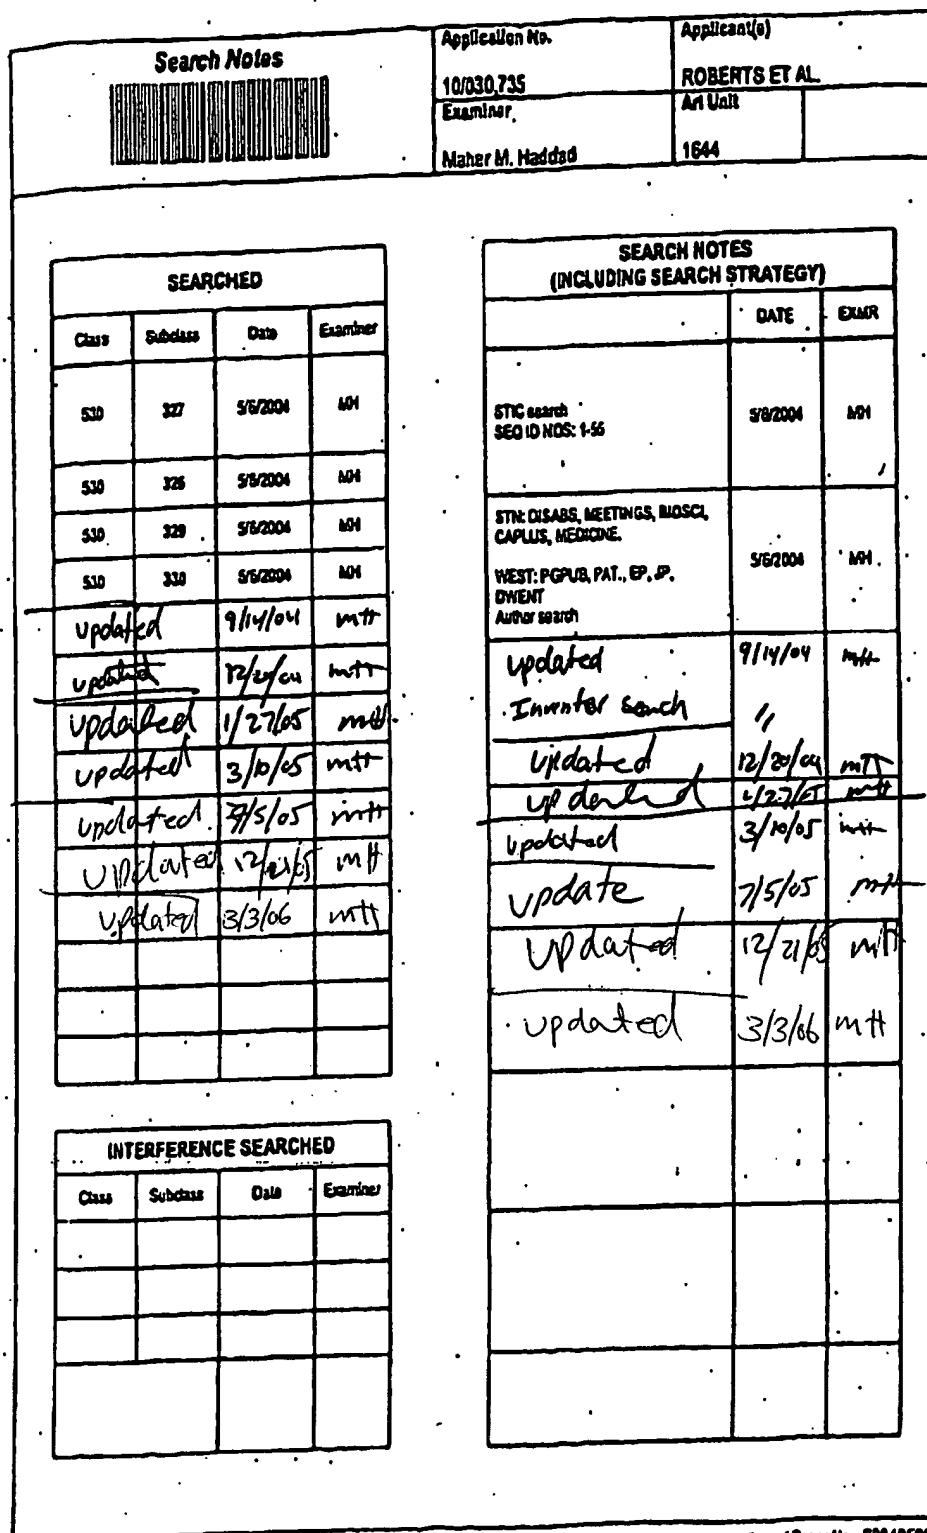 Search Notes
Application No.
Applicant(s)
10/030,735
ROBERTS ET AL.
Examiner
Art Unit
Maher M. Haddad
1644
SEARCHED
Class Subclass Date Examiner
530 327 5/6/2004 MH
530 326 5/6/2004 MH
530 329 5/6/2004 MH
530 330 5/6/2004 MH
updated 9/14/04 MH
updated 12/20/04 MH
updated 1/27/05 MH
updated 3/10/05 MH
updated 7/5/05 MH
updated 12/21/05 MH
updated 3/3/06 MH
INTERFERENCE SEARCHED
Class Subclass Date Examiner
SEARCH NOTES
(INCLUDING SEARCH STRATEGY)
DATE EXMR
STIC search
SEQ ID NOS: 1-56
5/6/2004 MH
STN: DISABS, MEETINGS, BIOSCI,
CAPLUS, MEDICINE.
WEST: PGPUB, PAT., EP, JP,
DWENT
Author search
5/6/2004 MH
updated 9/14/04 MH
Inventor search "
updated 12/20/04 MH
updated 1/27/05 MH
updated 3/10/05 MH
update 7/5/05 MH
updated 12/21/05 MH
updated 3/3/06 MH